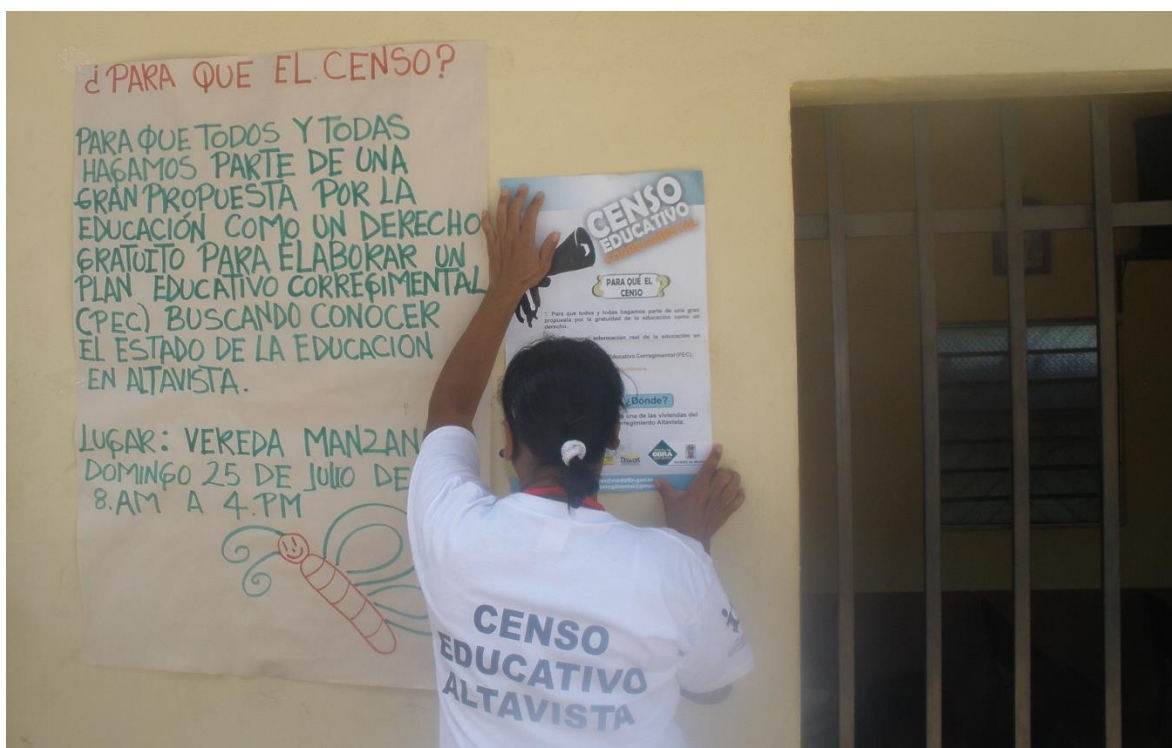 ¿PARA QUE EL CENSO?
PARA QUE TODOS Y TODAS
HAGAMOS PARTE DE UNA
GRAN PROPUESTA POR LA
EDUCACIÓN COMO UN DERECHO
GRATUITO PARA ELABORAR UN
PLAN EDUCATIVO CORREGIMENTAL
(PEC) BUSCANDO CONOCER
EL ESTADO DE LA EDUCACION
EN ALTAVISTA.
LUGAR: VEREDA MANZAN
DOMINGO 25 DE JULIO DE
8.AM A 4.PM
CENSO
EDUCATIVO
CORREGIMENTAL
PARA QUÉ EL
CENSO
1. Para que todos y todas hagamos parte de una gran
propuesta por la gratuidad de la educación como un
derecho.
información real de la educación en
Educativo Corregimental (PEC),
¿Dónde?
una de las viviendas del
corregimiento Altavista.
OBRA
CENSO
EDUCATIVO
ALTAVISTA